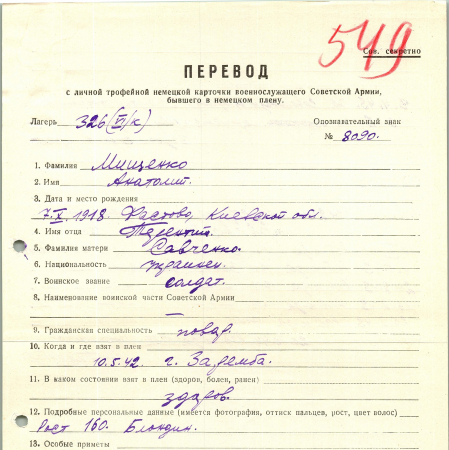 549
Сов. секретно
ПЕРЕВОД
с личной трофейной немецкой карточки военнослужащего Советской Армии,
бывшего в немецком плену.
Лагерь 326 (VI/к)
Опознавательный знак
№ 8090.
1. Фамилия Мищенко
2. Имя Анатолий.
3. Дата и место рождения
7.X.1918. Фастово, Киевской обл.
4. Имя отца Терентий.
5. Фамилия матери Савченко.
6. Национальность украинец.
7. Воинское звание солдат.
8. Наименование воинской части Советской Армии
—
9. Гражданская специальность повар.
10. Когда и где взят в плен
10.5.42. г.
11. В каком состоянии взят в плен (здоров, болен, ранен)
здоров.
12. Подробные персональные данные (имеется фотография, оттиск пальцев, рост, цвет волос)
Рост 160. Блондин.
13. Особые приметы